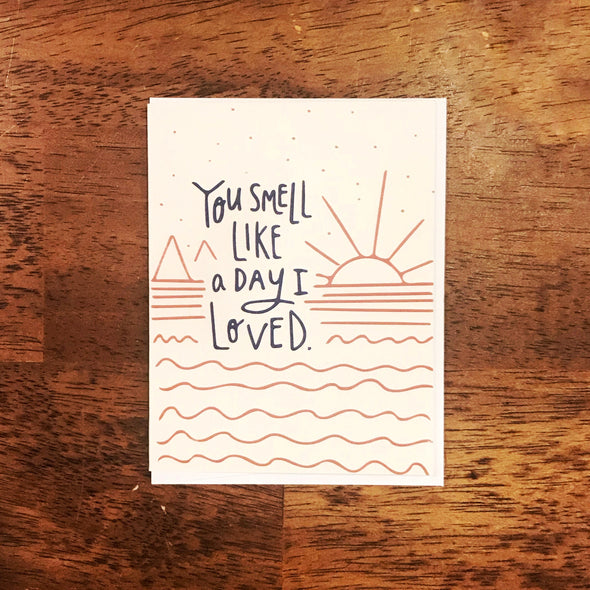 You SMELL
LIKE
a DAY I
LOVED.